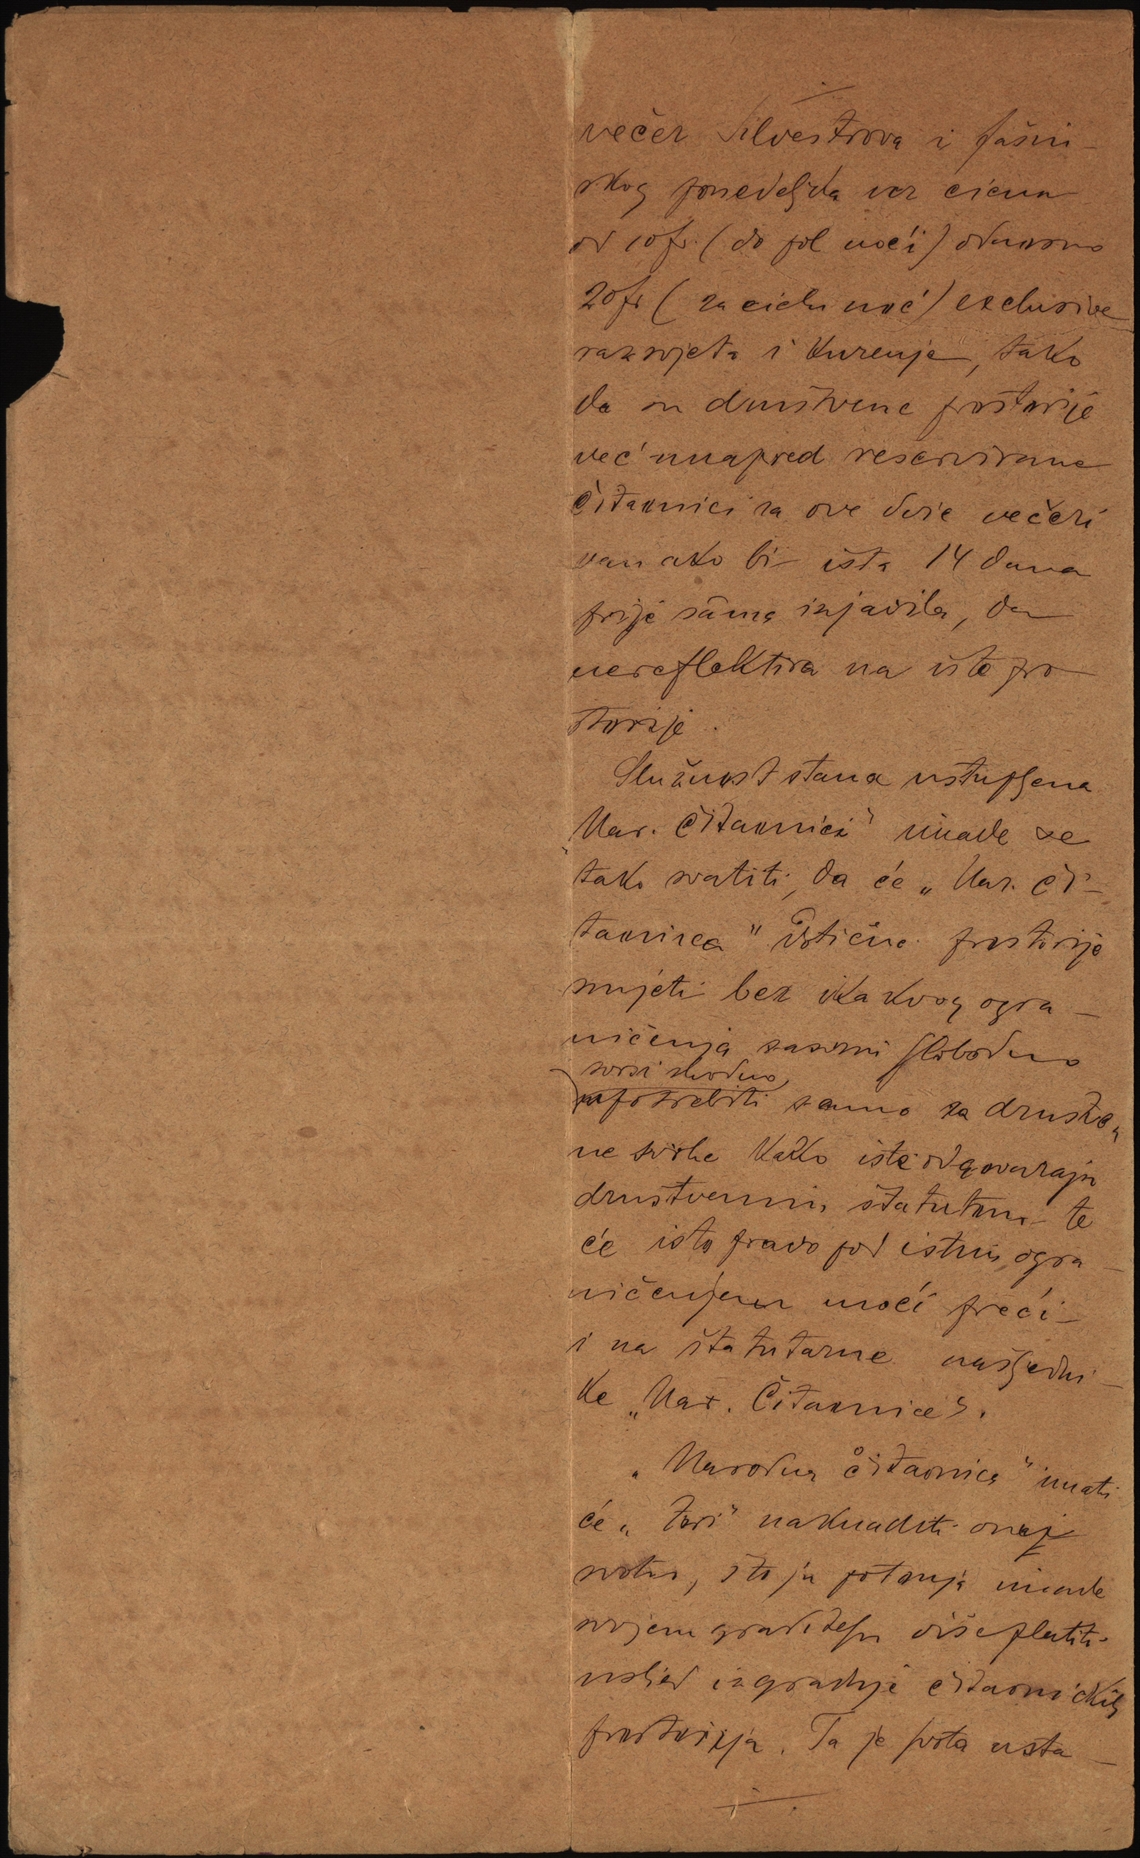 večer Silvestrova i fašin-
skog ponedeljka uz cienu
od 10 fr. (do pol noći) odnosno
20 fr (za cielu noć) exclusive
razsvjeta i kurenje, tako
da su društvene prostorije
već unapred reservirane
Čitaonici za ove dvie večeri
van ako bi ista 14 dana
prije sâma izjavila, da
nereflektira na iste pro
storije.
Služnost stana ustupljena
„Nar. Čitaonici" imade se
tako svatiti, da će „Nar. Či-
taonica" istične prostorije
smjeti bez ikakvog ogra-
ničenja sasvim slobodno
svrsi shodno,
upotrebiti samo za društve
ne svrhe kako iste odgovaraju
društvenim štatutom te
će isto pravo pod istim ogra-
ničenjem moći preći
i na štatutarne nasljedni-
ke „Nar. Čitaonice".
„Narodna Čitaonica" imati
će „Zori" naknaditi onaj
svotu, što ju potonja imade
svojem graditelju više platiti
usljed izgradnje čitaoničkih
prostorija. Ta je svota usta-